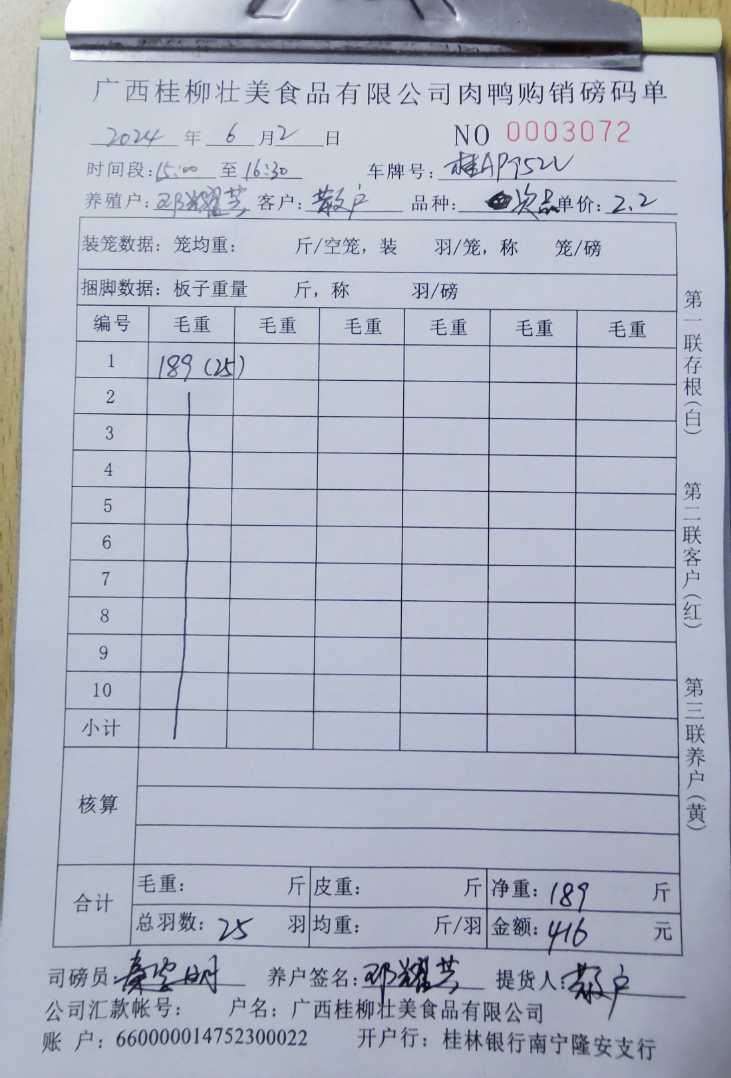 广西桂柳壮美食品有限公司肉鸭购销磅码单
2024 年 6 月 2 日 NO 0003072
时间段: 15:00 至 16:30 车牌号:
养殖户: 邓耀芸 客户: 散户 品种: 次品 单价: 2.2
装笼数据: 笼均重: 斤/空笼, 装 羽/笼, 称 笼/磅
捆脚数据: 板子重量 斤, 称 羽/磅
编号 毛重 毛重 毛重 毛重 毛重 毛重
1 189 (25)
2
3
4
5
6
7
8
9
10
小计
核算
合计 毛重: 斤 皮重: 斤 净重: 189 斤
总羽数: 25 羽 均重: 斤/羽 金额: 416 元
司磅员: 养户签名: 邓耀芸 提货人: 散户
公司汇款帐号: 户名: 广西桂柳壮美食品有限公司
账 户: 660000014752300022 开户行: 桂林银行南宁隆安支行
第一联存根(白)
第二联客户(红)
第三联养户(黄)